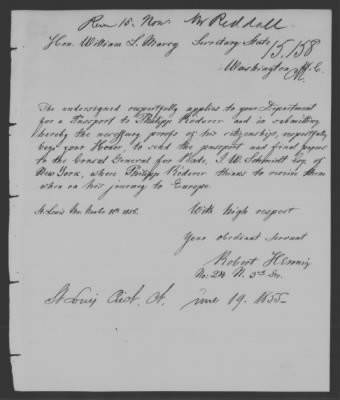 Recd 18. Nov. Mr Reddall.
Hon. William L. Marcy Secretary State
15,158
Washington
The undersigned respectfully applies to your Department
for a Passport to Philipp Rederer and in submitting
hereby the necessary proofs of his citizenship, respectfully
begs your Honor, to send the passport and final papers
to the Consul General for Bade, J. W. Schmidt Esq. of
New York, where Philipp Rederer thinks to receive them
when on his journey to Europe.
St. Louis Mo. 1856.
With high respect
Your obedient servant
Robert
No. 24 N. 3rd St.
St Louis June 19. 1855